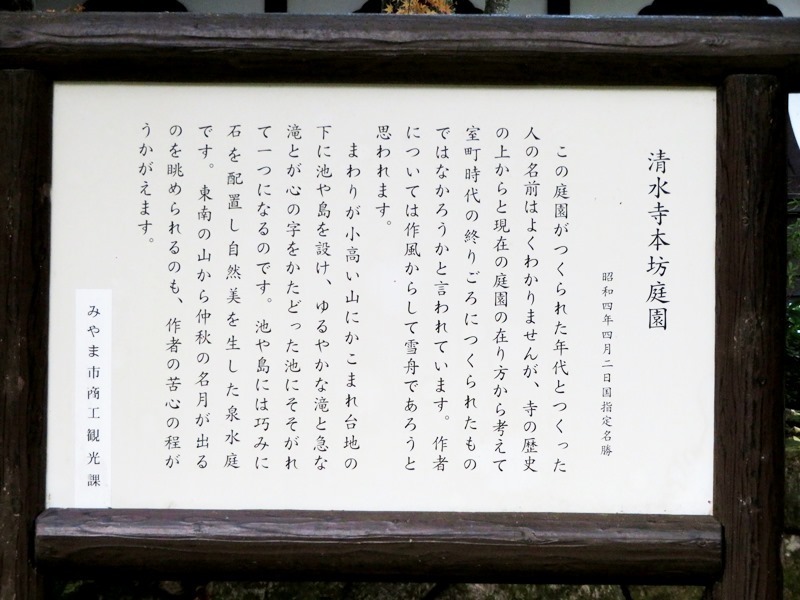 清水寺本坊庭園
昭和四年四月二日国指定名勝
この庭園がつくられた年代とつくった
人の名前はよくわかりませんが、寺の歴史
の上からと現在の庭園の在り方から考えて
室町時代の終りごろにつくられたもの
ではなかろうかと言われています。作者
については作風からして雪舟であろうと
思われます。
まわりが小高い山にかこまれ台地の
下に池や島を設け、ゆるやかな滝と急な
滝とが心の字をかたどった池にそそがれ
て一つになるのです。池や島には巧みに
石を配置し自然美を生した泉水庭
です。東南の山から仲秋の名月が出る
のを眺められるのも、作者の苦心の程が
うかがえます。
みやま市商工観光課